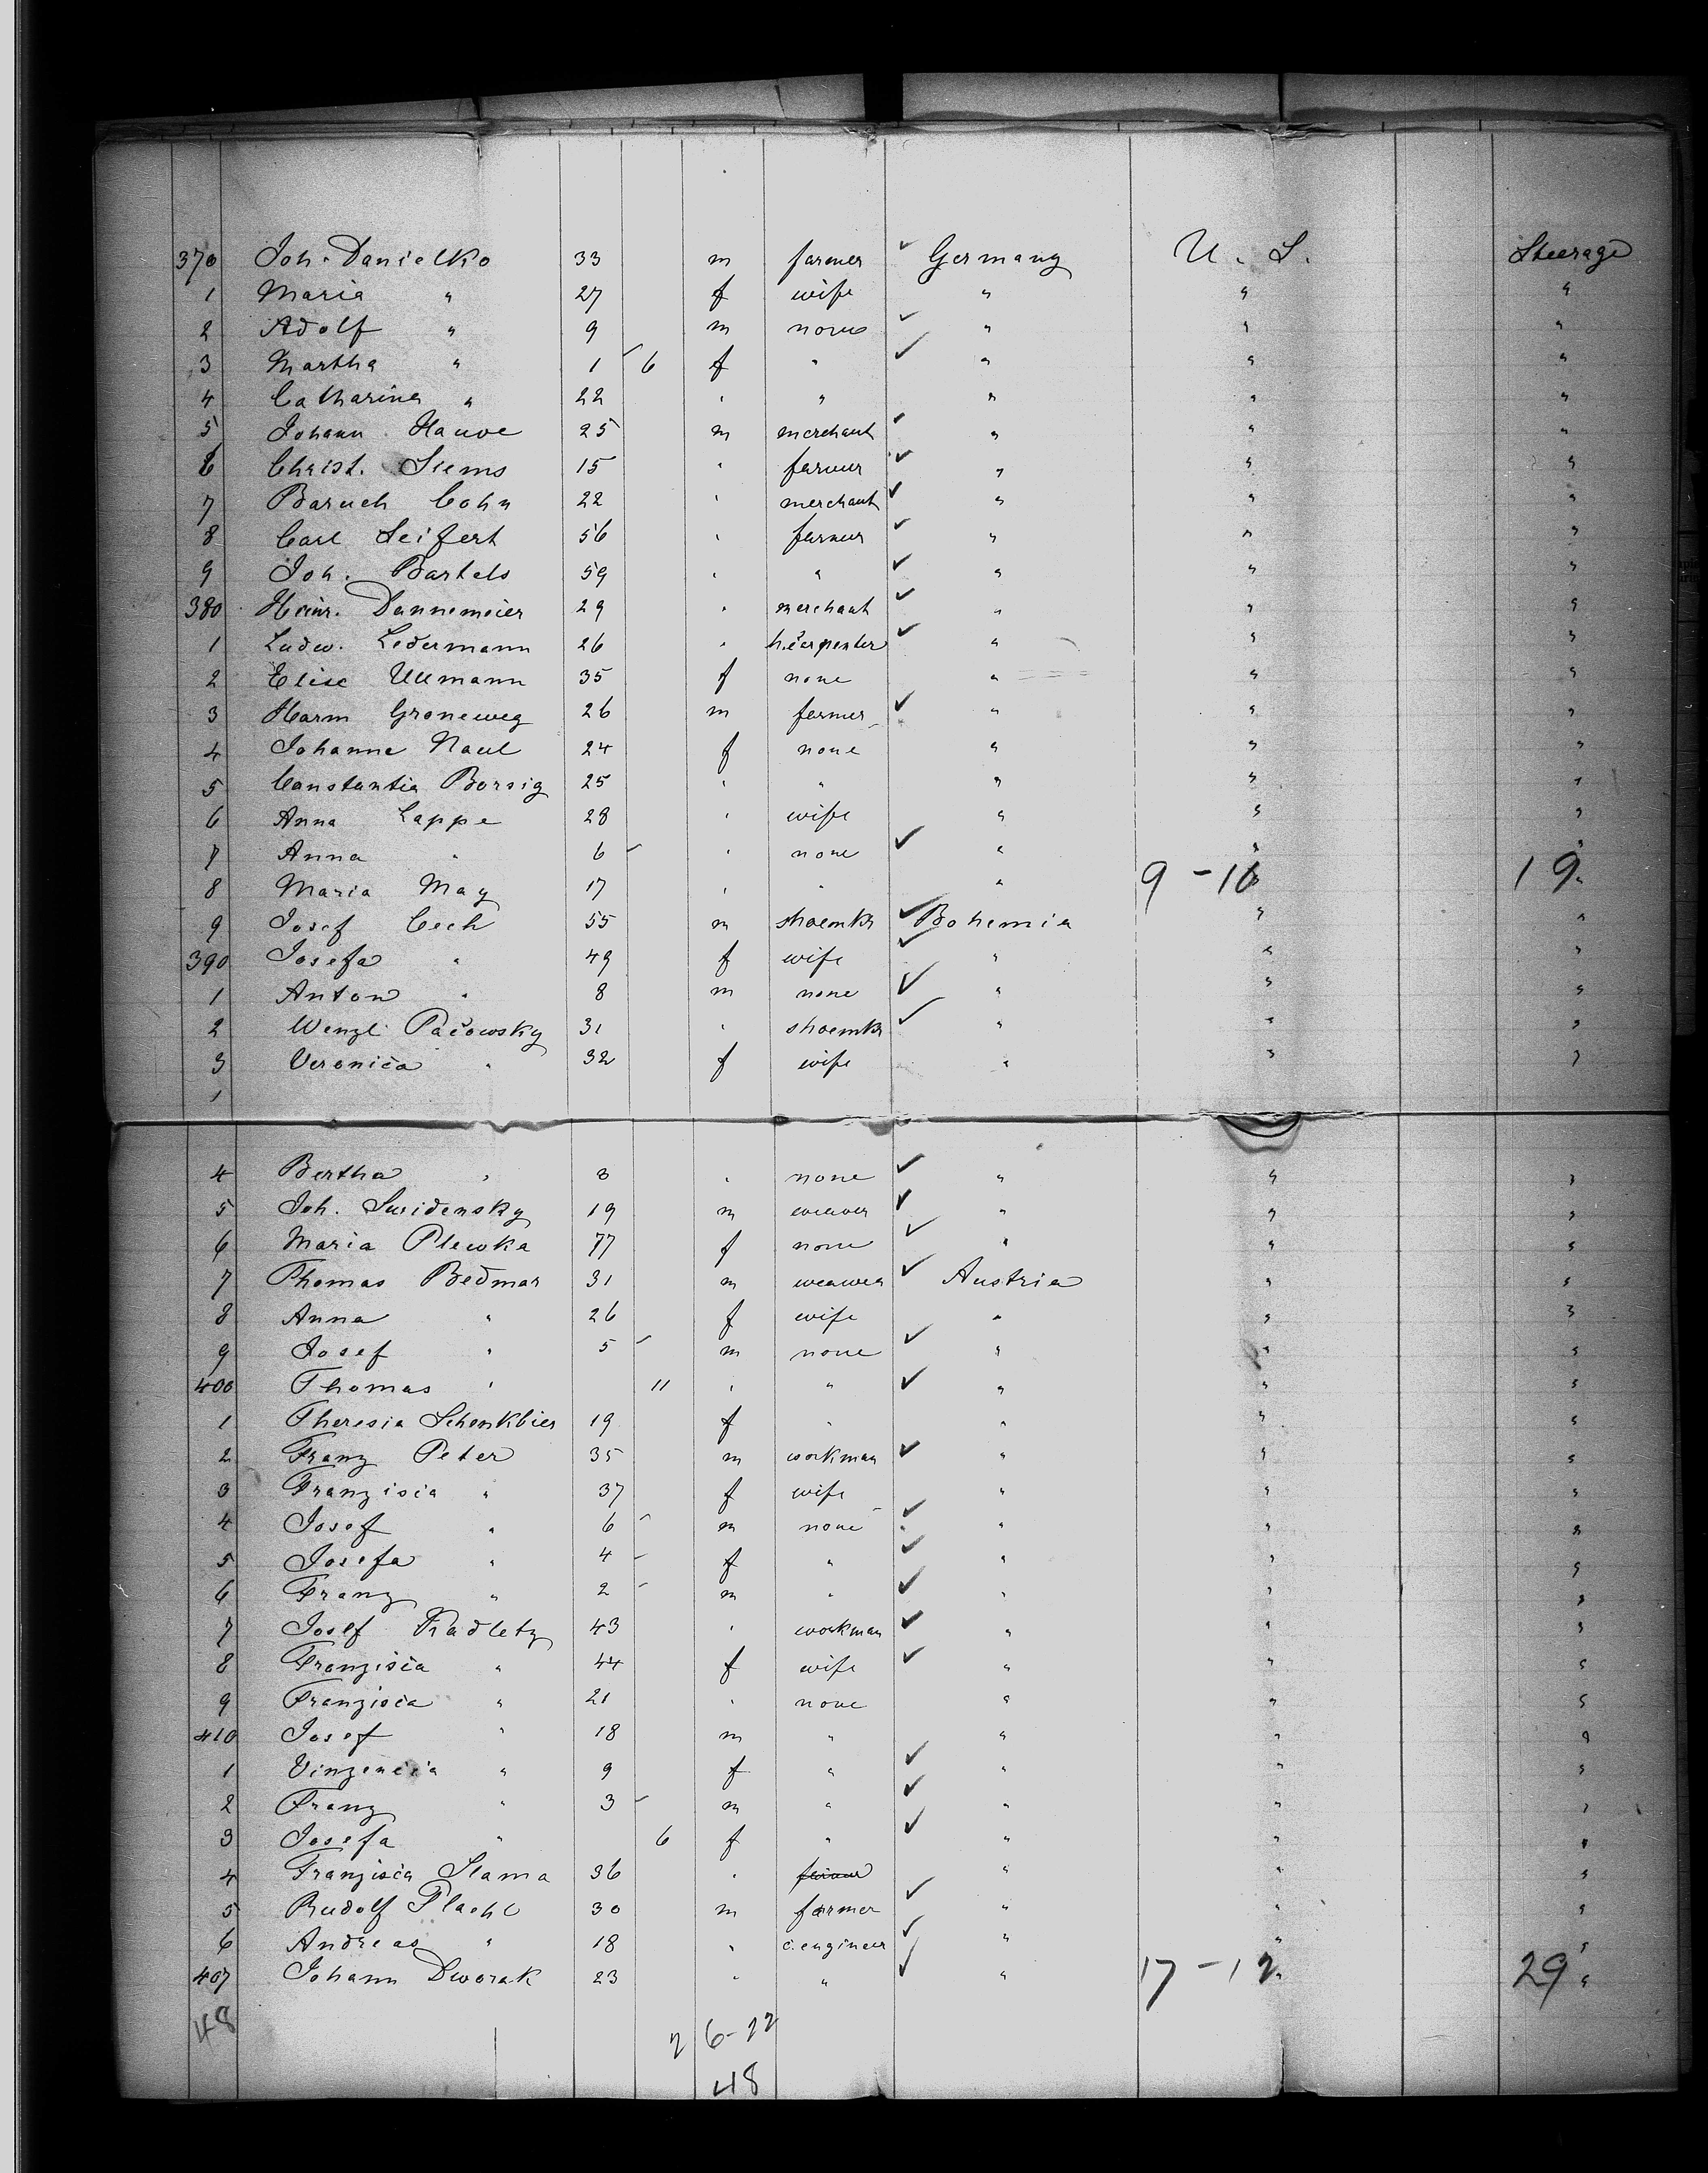 370 Joh. Danielko 33 m farmer ✓ Germany U. S. Steerage
1 Maria " 27 f wife " " "
2 Adolf " 9 m none ✓ " " "
3 Martha " 1 6 f " ✓ " " "
4 Catharina " 22 " " " " "
5 Johann Hauve 25 m merchant ✓ " " "
6 Christ. Siems 15 " farmer ✓ " " "
7 Baruch Cohn 22 " merchant ✓ " " "
8 Carl Seifert 56 " farmer ✓ " " "
9 Joh. Bartels 59 " " ✓ " " "
380 Heinr. Dannemeier 29 " merchant ✓ " " "
1 Ludw. Ledermann 26 " h.carpenter ✓ " " "
2 Elise Ullmann 35 f none " " "
3 Harm Groneweg 26 m farmer ✓ " " "
4 Johanne Naul 24 f none " " "
5 Constantia Borsig 25 " " " " "
6 Anna Lappe 28 " wife " " "
7 Anna " 6 " none ✓ " " "
8 Maria May 17 " " " 9 - 10 19 "
9 Josef Cech 55 m shoemkr ✓ Bohemia " "
390 Josefa " 49 f wife ✓ " " "
1 Anton " 8 m none ✓ " " "
2 Wenzl Pačowsky 31 " shoemkr ✓ " " "
3 Veronica " 32 f wife " " "
4 Bertha " 8 " none ✓ " " "
5 Joh. Swidensky 19 m weaver ✓ " " "
6 Maria Plewka 77 f none ✓ " " "
7 Thomas Bedmar 31 m weawer ✓ Austria " "
8 Anna " 26 f wife " " "
9 Josef " 5 m none ✓ " " "
400 Thomas " 11 " " ✓ " " "
1 Theresia Schenkbier 19 f " " " "
2 Franz Peter 35 m workman ✓ " " "
3 Franzisia " 37 f wife " " "
4 Josef " 6 m none ✓ " " "
5 Josefa " 4 f " ✓ " " "
6 Franz " 2 m " ✓ " " "
7 Josef Kadletz 43 " workman ✓ " " "
8 Franzisca " 44 f wife ✓ " " "
9 Franzisca " 21 " none " " "
410 Josef " 18 m " " " "
1 Vinzencia " 9 f " ✓ " " "
2 Franz " 3 m " ✓ " " "
3 Josefa " 6 f " ✓ " " "
4 Franzisca Slama 36 " farmer " " "
5 Rudolf Plachl 30 m farmer ✓ " " "
6 Andreas " 18 " c.engineer ✓ " " "
407 Johann Dworak 23 " " ✓ " 17 - 12 29 "
48 2 6-22
48